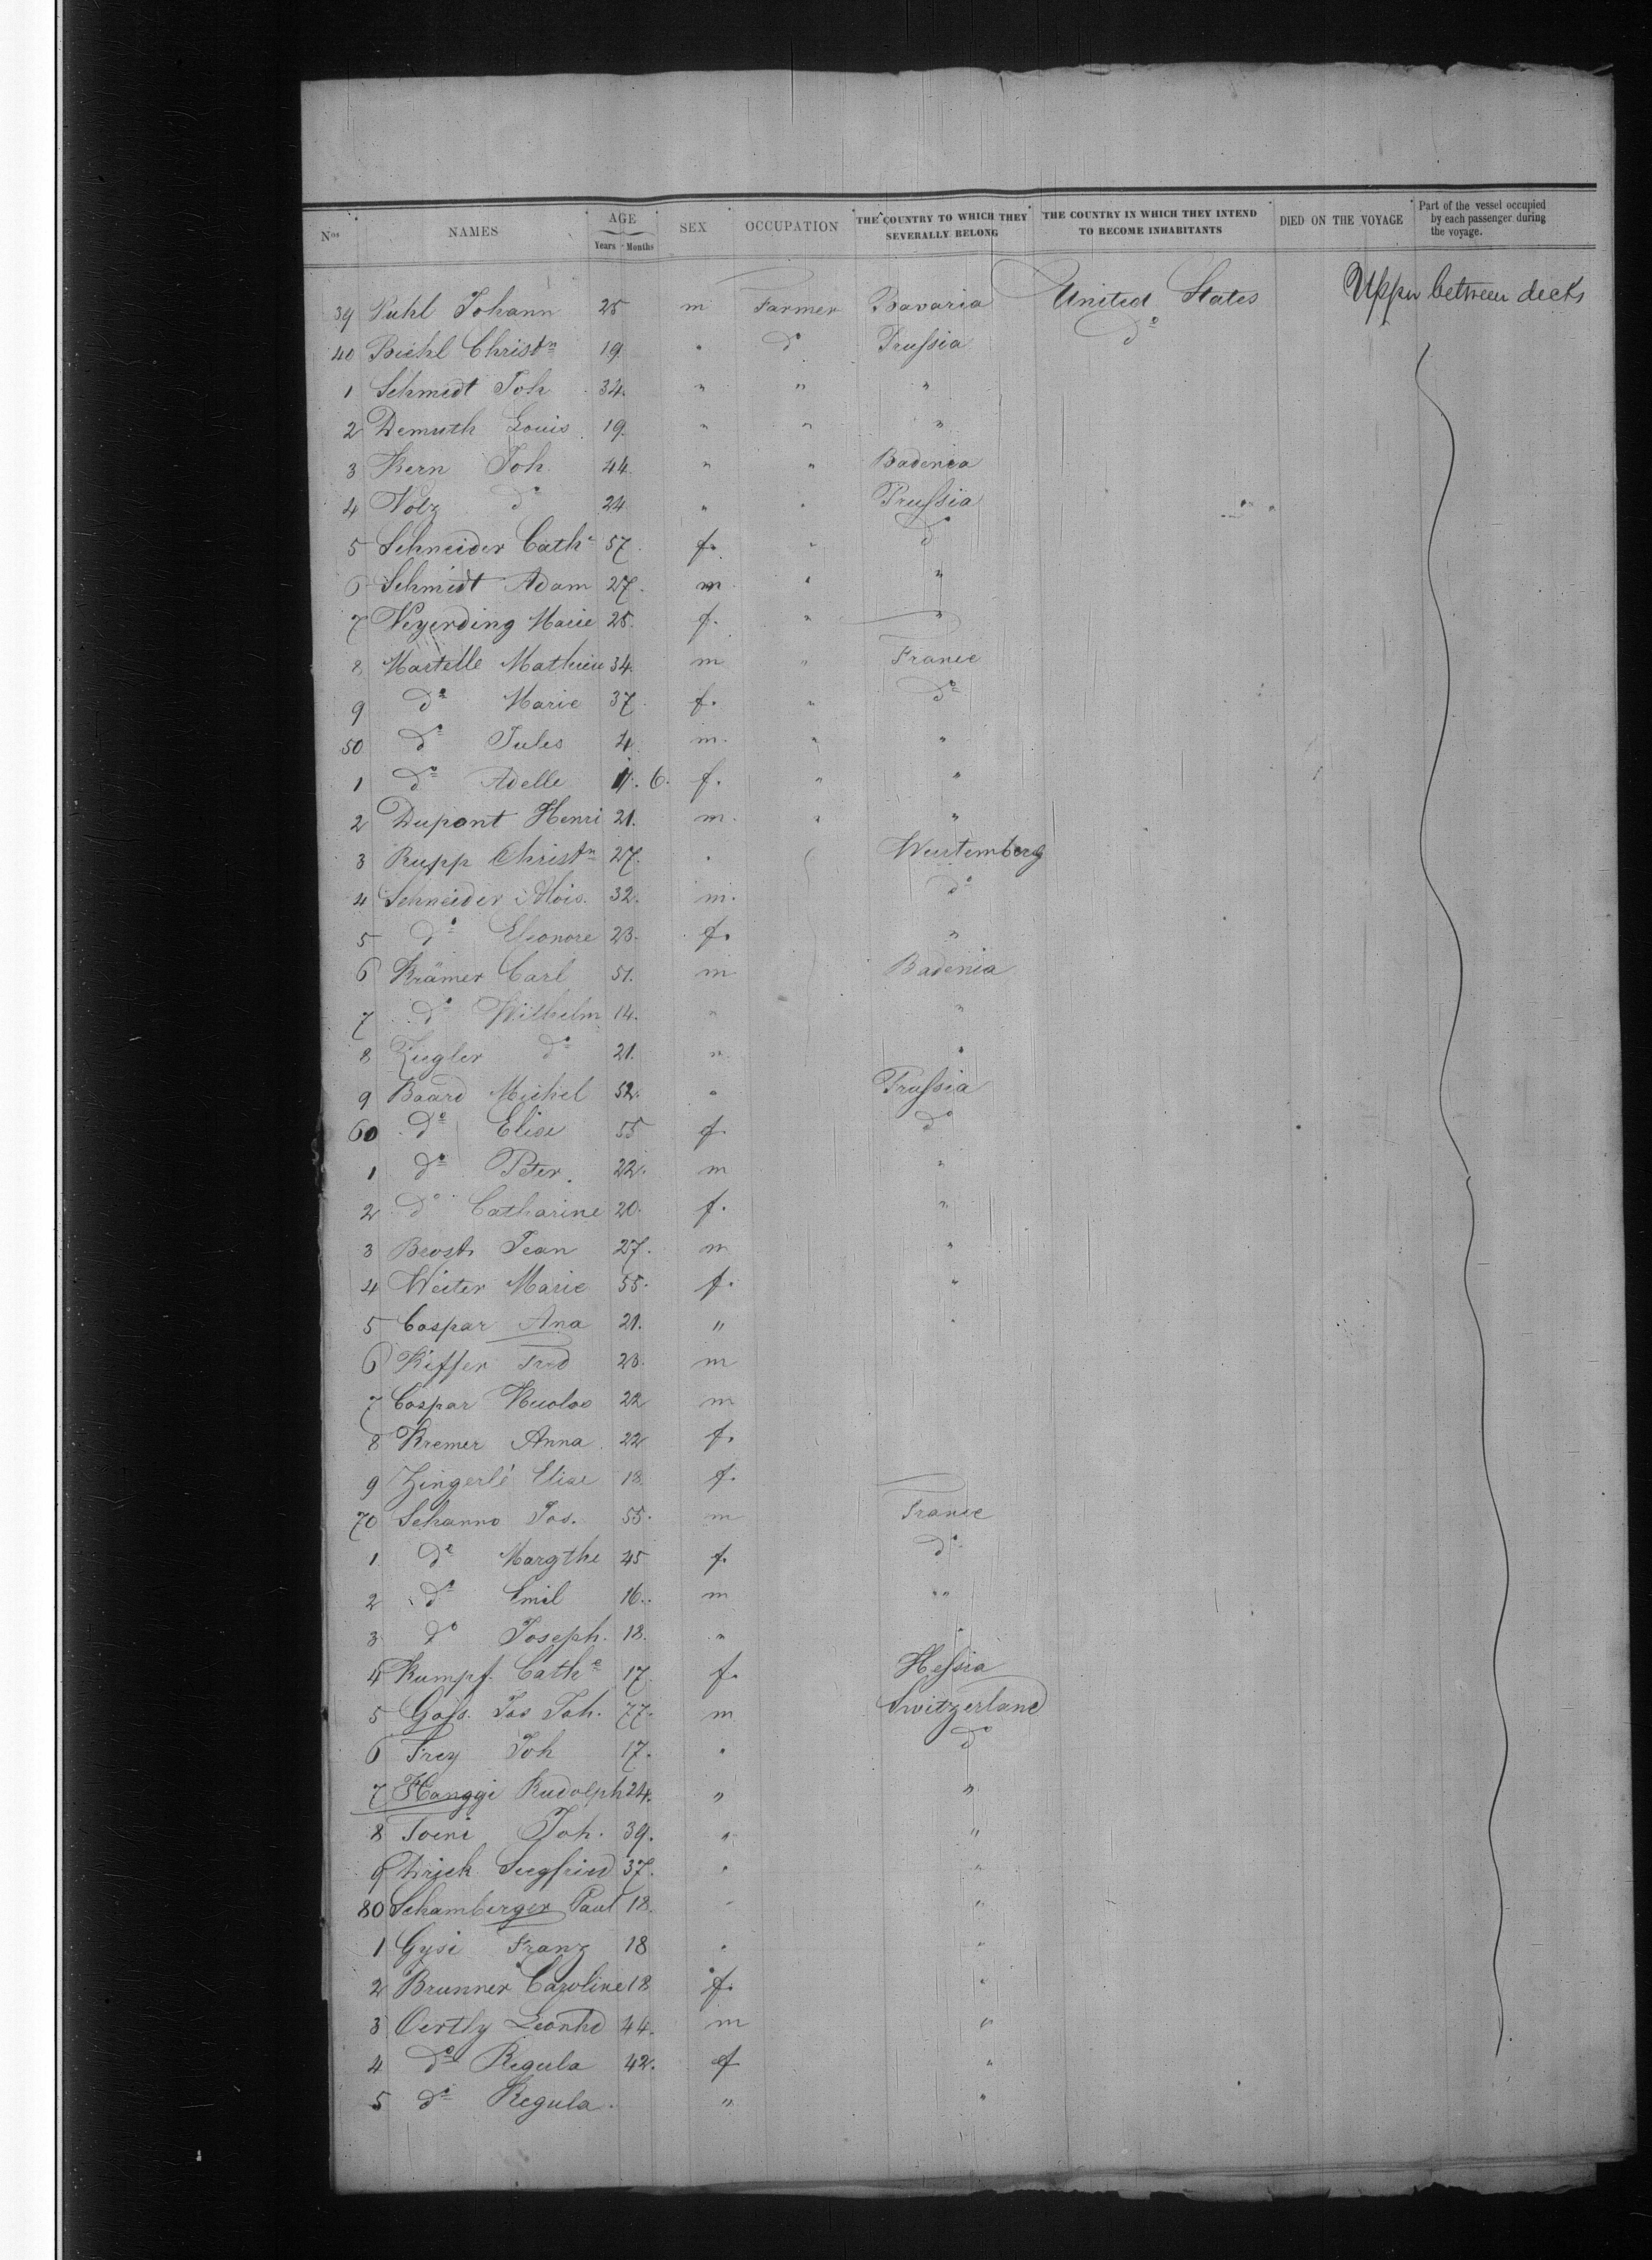 Nos NAMES AGE Years Months SEX OCCUPATION THE COUNTRY TO WHICH THEY SEVERALLY BELONG THE COUNTRY IN WHICH THEY INTEND TO BECOME INHABITANTS DIED ON THE VOYAGE Part of the vessel occupied by each passenger during the voyage.
39 Puhl Johann 25 m Farmer Bavaria United States Upper between decks
40 Biehl Christn 19. " do Prussia do
1 Schmidt Joh 34. " " "
2 Demuth Louis 19. " " "
3 Kern Joh. 44. " " Badenia
4 Volz do 24 " " Prussia
5 Schneider Cathe 57. f. " do
6 Schmidt Adam 27. m. " "
7 Veyerding Marie 25. f. " "
8 Martelle Mathieu 34. m " France
9 do Marie 37. f. " do
50 do Jules 4. m. " "
1 do Adelle 6. f. " "
2 Dupont Henri 21. m. " "
3 Rupp Christn 27. " Wurtemberg
4 Schneider Alois. 32. m. do
5 do Eleonore 23. f. "
6 Krämer Carl 51. m Badenia
7 do Wilhelm 14. " "
8 Ziegler do 21. " "
9 Baard Michel 52. " Prussia
60 do Elise 55 f. do
1 do Peter. 22. m "
2 do Catharine 20. f. "
3 Jean 27. m "
4 Weiter Marie 55. f. "
5 Caspar Ana 21. " "
6 Kiffer Fred 23. m
7 Caspar Nicolas 22 m
8 Kremer Anna. 22 f.
9 Zingerlé Elise 18. f.
70 Schanno Jos. 55. m France
1 do Margthe 45 f. do
2 do Emil 16. m "
3 do Joseph. 18. " "
4 Kumpf. Cathe 17. f. Hessia
5 Gass. Jos Joh. 77. m Switzerland
6 Frey Joh 17. " do
7 Hanggi Rudolph 24. " "
8 Joh. 39. " "
9 Siegfried 37. " "
80 Schamberger Paul 18. " "
1 Gysi Franz 18 " "
2 Brunner Caroline 18 f. "
3 Oertly Leonhd 44. m "
4 do Regula 42. f "
5 do Regula. " "